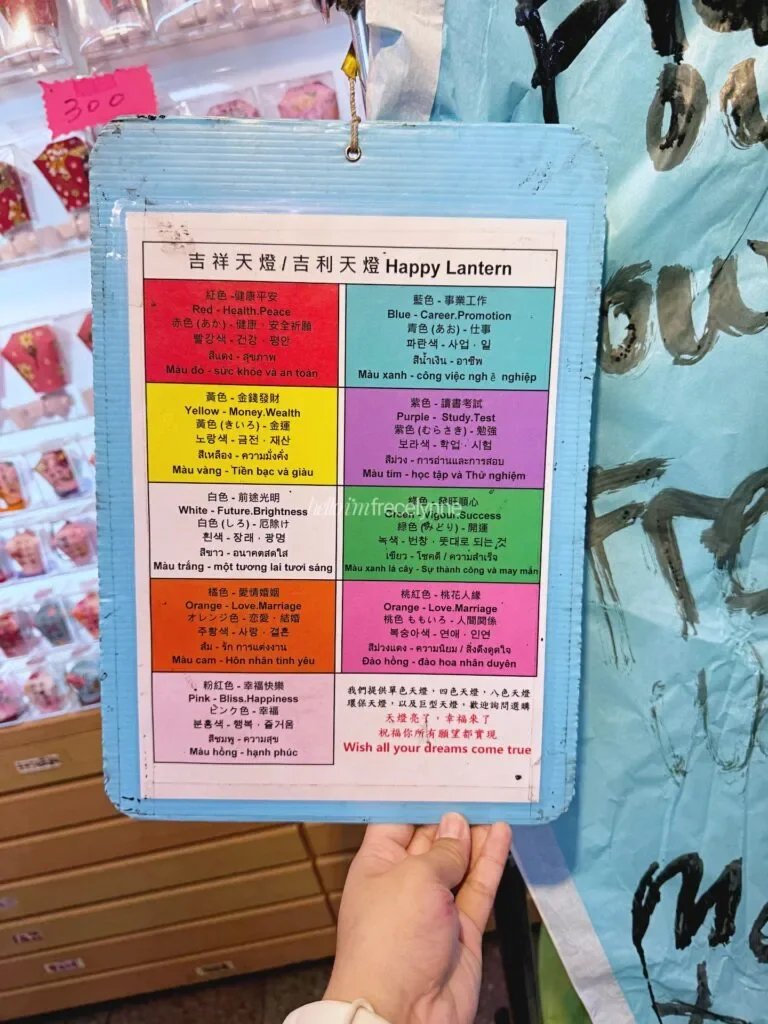 300
吉祥天燈/吉利天燈 Happy Lantern
紅色 -健康平安
Red - Health.Peace
赤色 (あか) - 健康‧安全祈願
빨강색 - 건강 · 평안
สีแดง - สุขภาพ
Màu đỏ - sức khỏe và an toàn
藍色 - 事業工作
Blue - Career.Promotion
青色 (あお) - 仕事
파란색 - 사업 · 일
สีน้ำเงิน - อาชีพ
Màu xanh - công việc nghề nghiệp
黃色 - 金錢發財
Yellow - Money.Wealth
黃色 (きいろ) - 金運
노랑색 - 금전 · 재산
สีเหลือง - ความมั่งคั่ง
Màu vàng - Tiền bạc và giàu
紫色 - 讀書考試
Purple - Study.Test
紫色 (むらさき) - 勉強
보라색 - 학업 · 시험
สีม่วง - การอ่านและการสอบ
Màu tím - học tập và Thử nghiệm
白色 - 前途光明
White - Future.Brightness
白色 (しろ) - 厄除け
흰색 - 장래 · 광명
สีขาว - อนาคตสดใส
Màu trắng - một tương lai tươi sáng
綠色 - 發旺順心
Green - Vigour.Success
緑色 (みどり) - 開運
녹색 - 번창 · 뜻대로 되는 것
เขียว - โชคดี / ความสำเร็จ
Màu xanh lá cây - Sự thành công và may mắn
frecelynne
橘色 - 愛情婚姻
Orange - Love.Marriage
オレンジ色 - 恋愛‧結婚
주황색 - 사랑 · 결혼
ส้ม - รัก การแต่งงาน
Màu cam - Hôn nhân tình yêu
桃紅色 - 桃花人緣
Orange - Love.Marriage
桃色 ももいろ - 人間関係
복숭아색 - 연애 · 인연
สีม่วงแดง - ความนิยม / สิ่งดึงดูดใจ
Đào hồng - đào hoa nhân duyên
粉紅色 - 幸福快樂
Pink - Bliss.Happiness
ピンク色 - 幸福
분홍색 - 행복 · 즐거움
สีชมพู - ความสุข
Màu hồng - hạnh phúc
我們提供單色天燈，四色天燈，八色天燈
環保天燈，以及巨型天燈，歡迎詢問選購
天燈亮了，幸福來了
祝福你所有願望都實現
Wish all your dreams come true